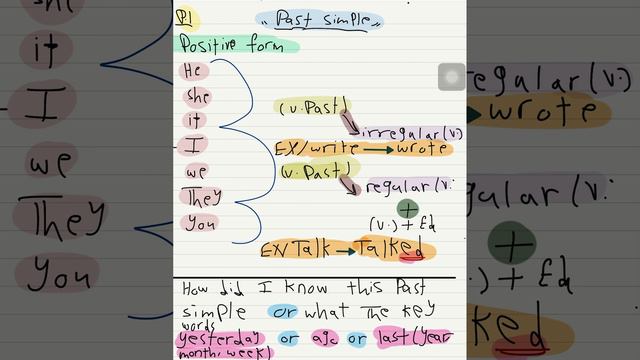 P1
"Past simple"
Positive form
He
she
it
I
we
They
you
(v. Past)
irregular (v.)
EX/write → wrote
(v. Past)
regular (v.
+
(v.) + Ed
EX/Talk → Talked
How did I know this Past
simple or what The key
words
yesterday or ago or last (year
month, week)